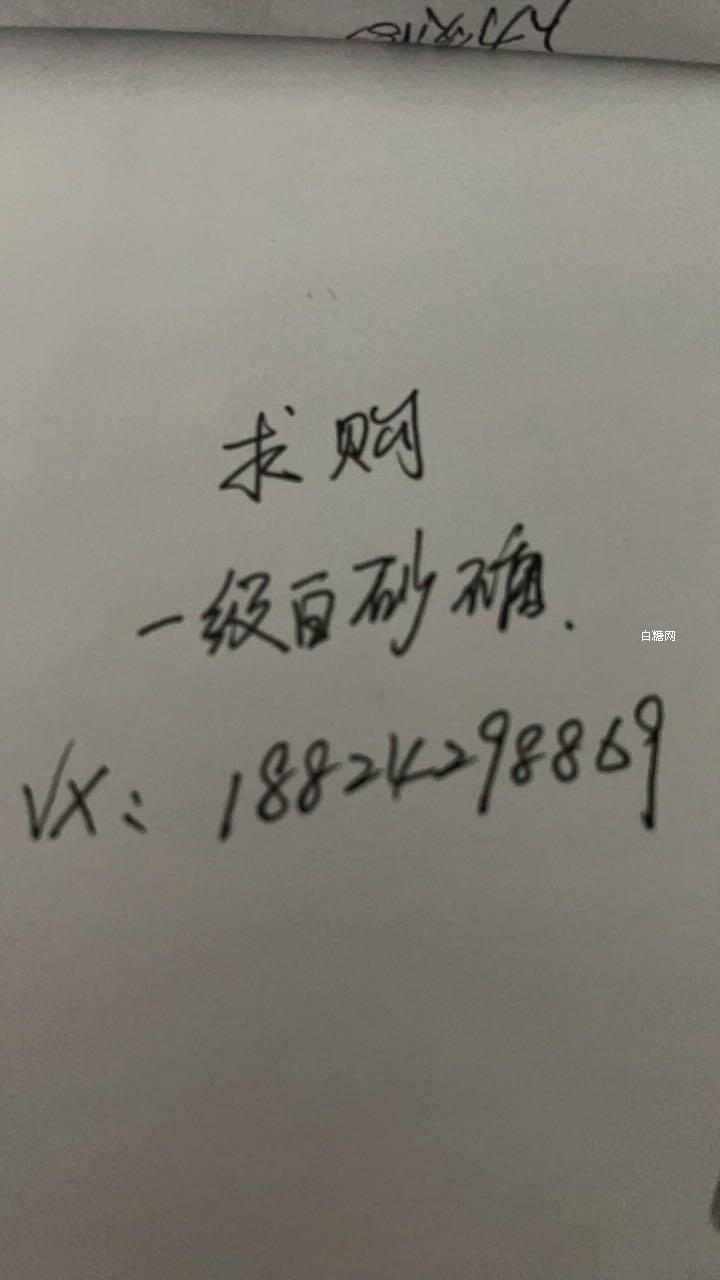 求购
一级白砂糖.
白糖网
VX: 18824298869